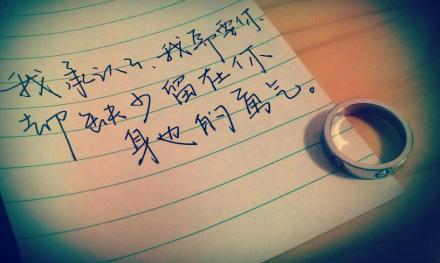 我承认、我需要你
却缺少留在你
身边的勇气。